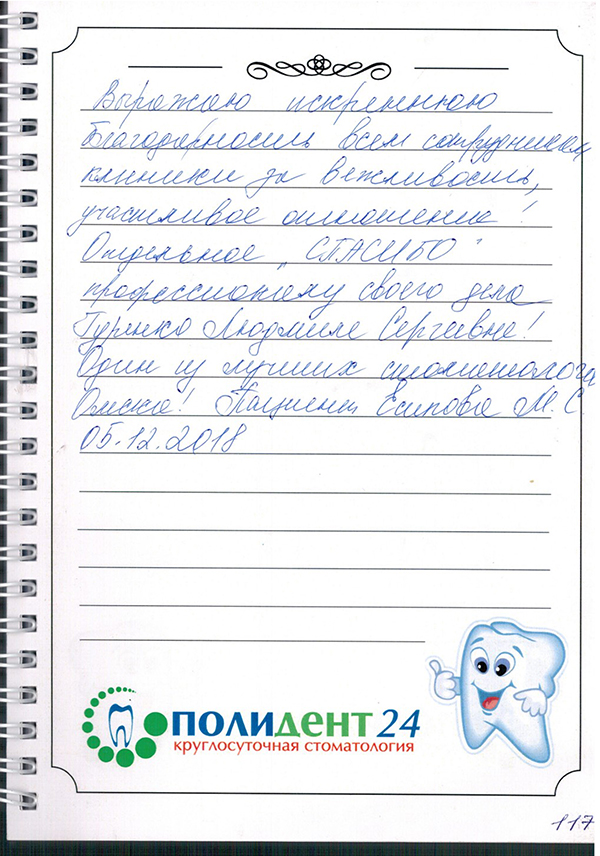 Выражаю искреннюю
благодарность всем сотрудникам
клиники за вежливость,
участливое отношение!
Отдельное "СПАСИБО"
профессионалу своего дела
Гурянко Людмиле Сергеевне!
Один из лучших стоматологов
Омска! Пациент Есипова М.С.
05.12.2018
ПОЛИДЕНТ 24
круглосуточная стоматология
117